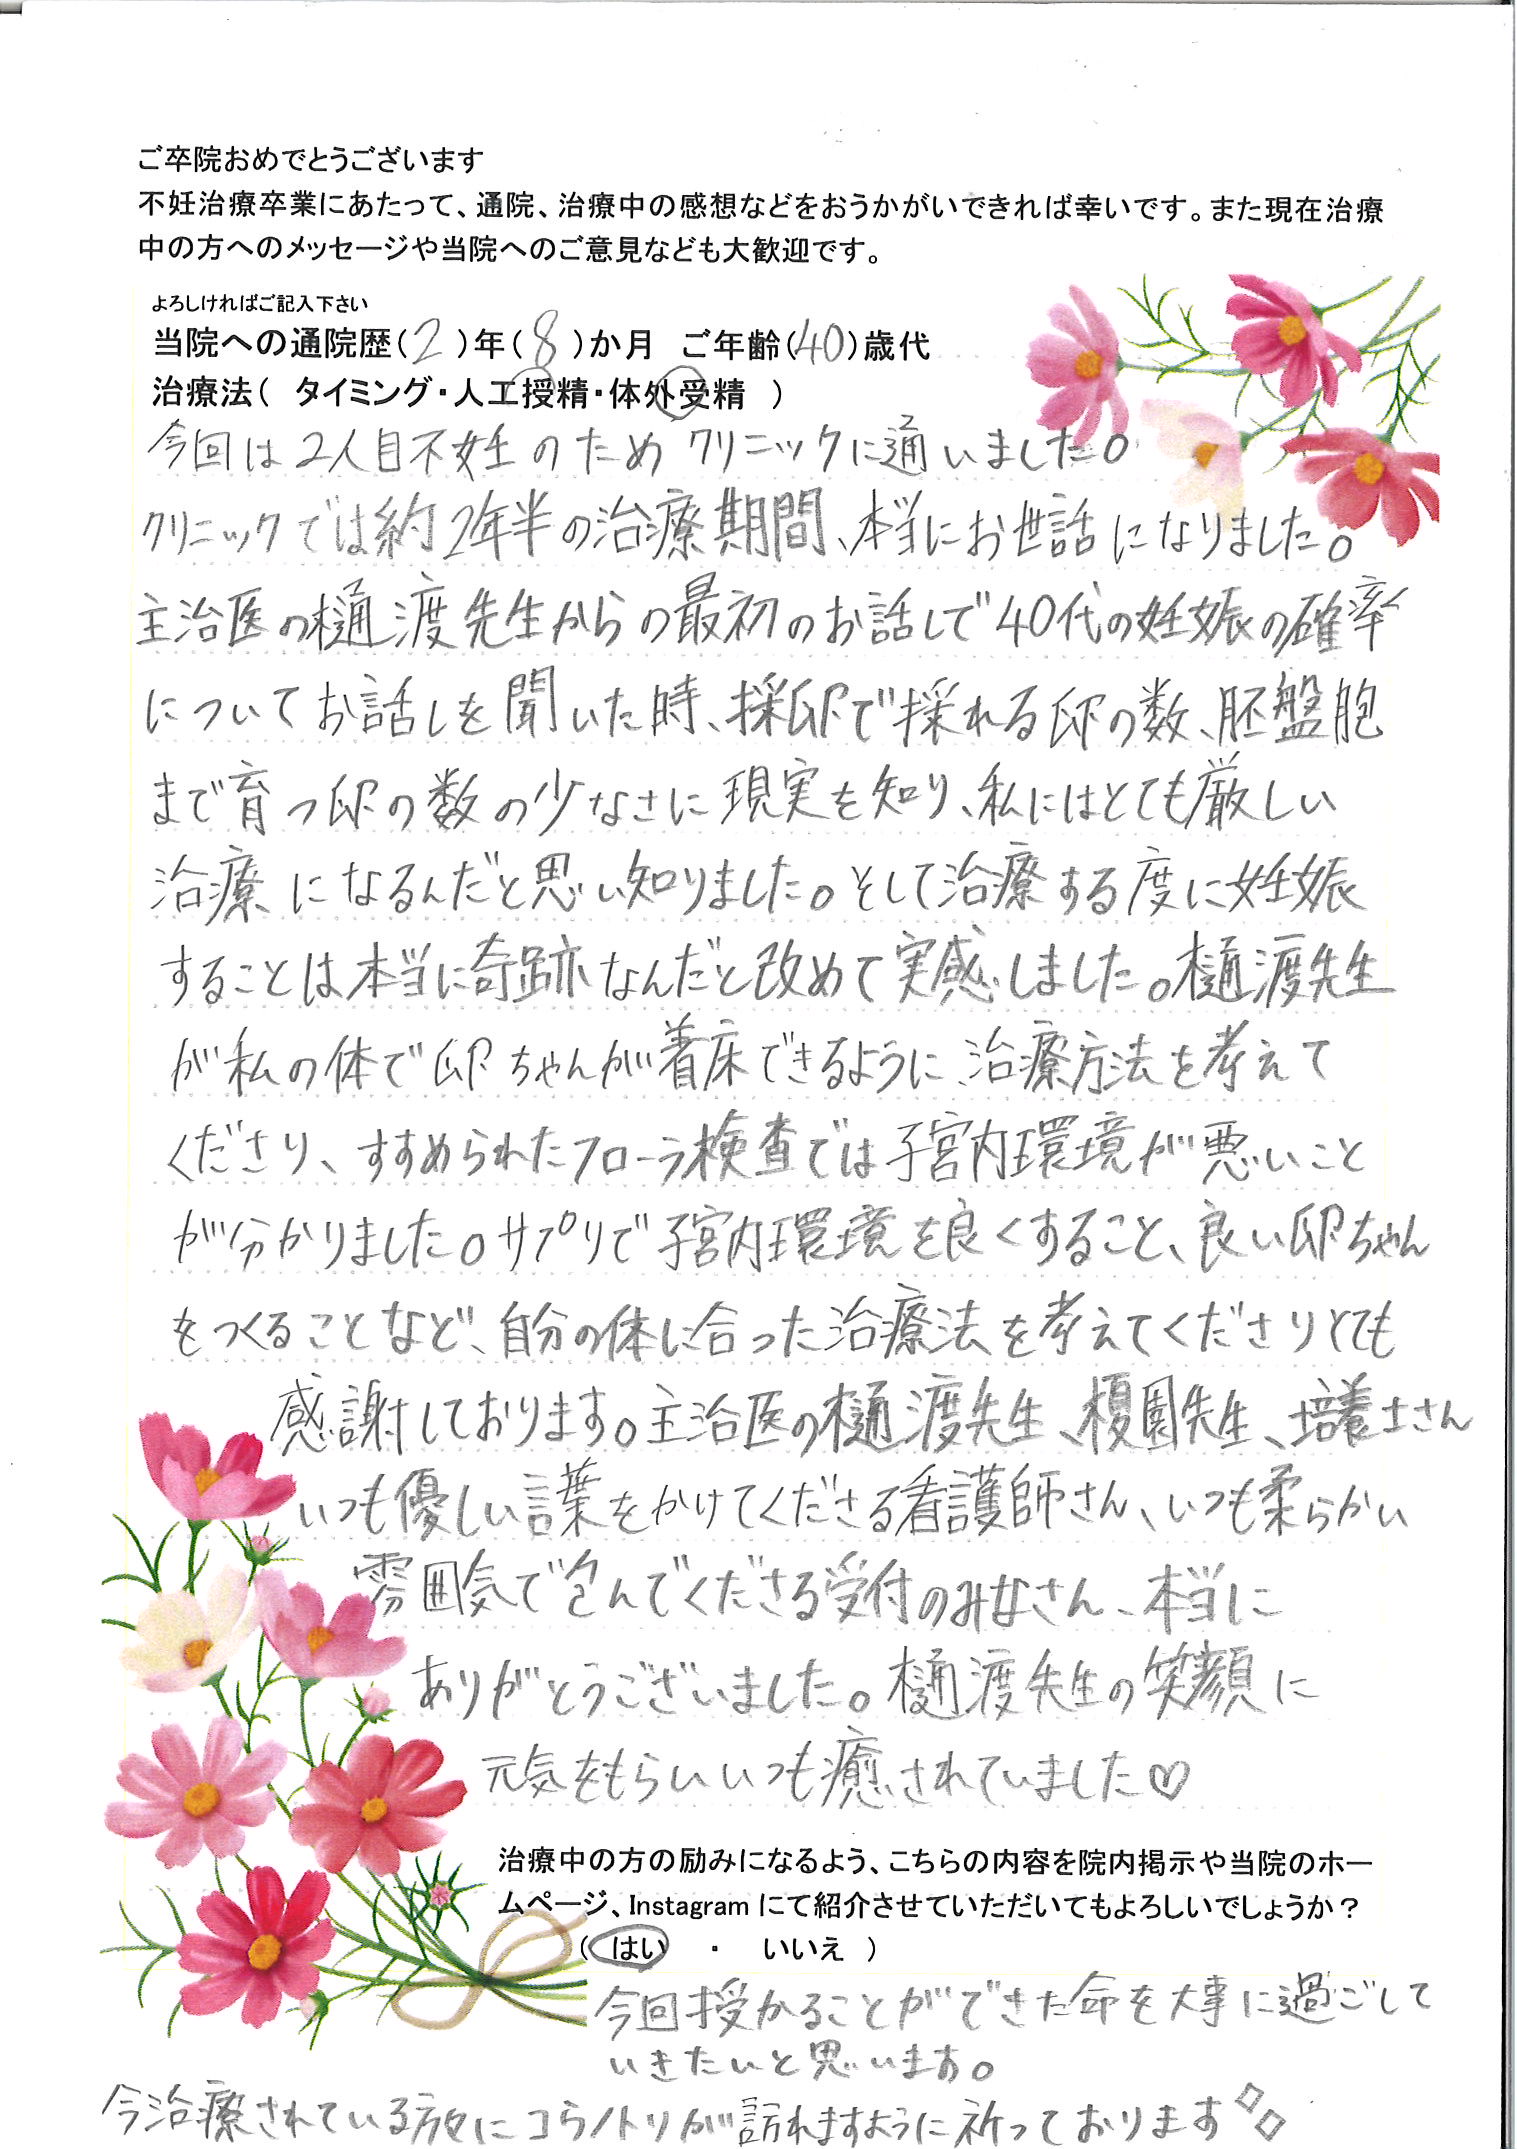 ご卒院おめでとうございます
不妊治療卒業にあたって、通院、治療中の感想などをおうかがいできれば幸いです。また現在治療
中の方へのメッセージや当院へのご意見なども大歓迎です。
よろしければご記入下さい
当院への通院歴(2)年(8)か月 ご年齢(40)歳代
治療法( タイミング・人工授精・体外受精 )
今回は2人目不妊のためクリニックに通いました。
クリニックでは約2年半の治療期間、本当にお世話になりました。
主治医の樋渡先生からの最初のお話しで40代の妊娠の確率
についてお話しを聞いた時、採卵で採れる卵の数、胚盤胞
まで育つ卵の数の少なさに現実を知り、私にはとても厳しい
治療になるんだと思い知りました。そして治療する度に妊娠
することは本当に奇跡なんだと改めて実感しました。樋渡先生
が私の体で卵ちゃんが着床できるように、治療方法を考えて
くださり、すすめられたフローラ検査では子宮内環境が悪いこと
が分かりました。サプリで子宮内環境を良くすること、良い卵ちゃん
をつくることなど、自分の体に合った治療法を考えてくださりとても
感謝しております。主治医の樋渡先生、榎園先生、培養士さん
いつも優しい言葉をかけてくださる看護師さん、いつも柔らかい
雰囲気で包んでくださる受付のみなさん、本当に
ありがとうございました。樋渡先生の笑顔に
元気をもらいいつも癒されていました♡
治療中の方の励みになるよう、こちらの内容を院内掲示や当院のホー
ムページ、Instagram にて紹介させていただいてもよろしいでしょうか?
( はい ・ いいえ )
今回授かることができた命を大事に過ごして
いきたいと思います。
今治療されている方々にコウノトリが訪れますように祈っております◇◇